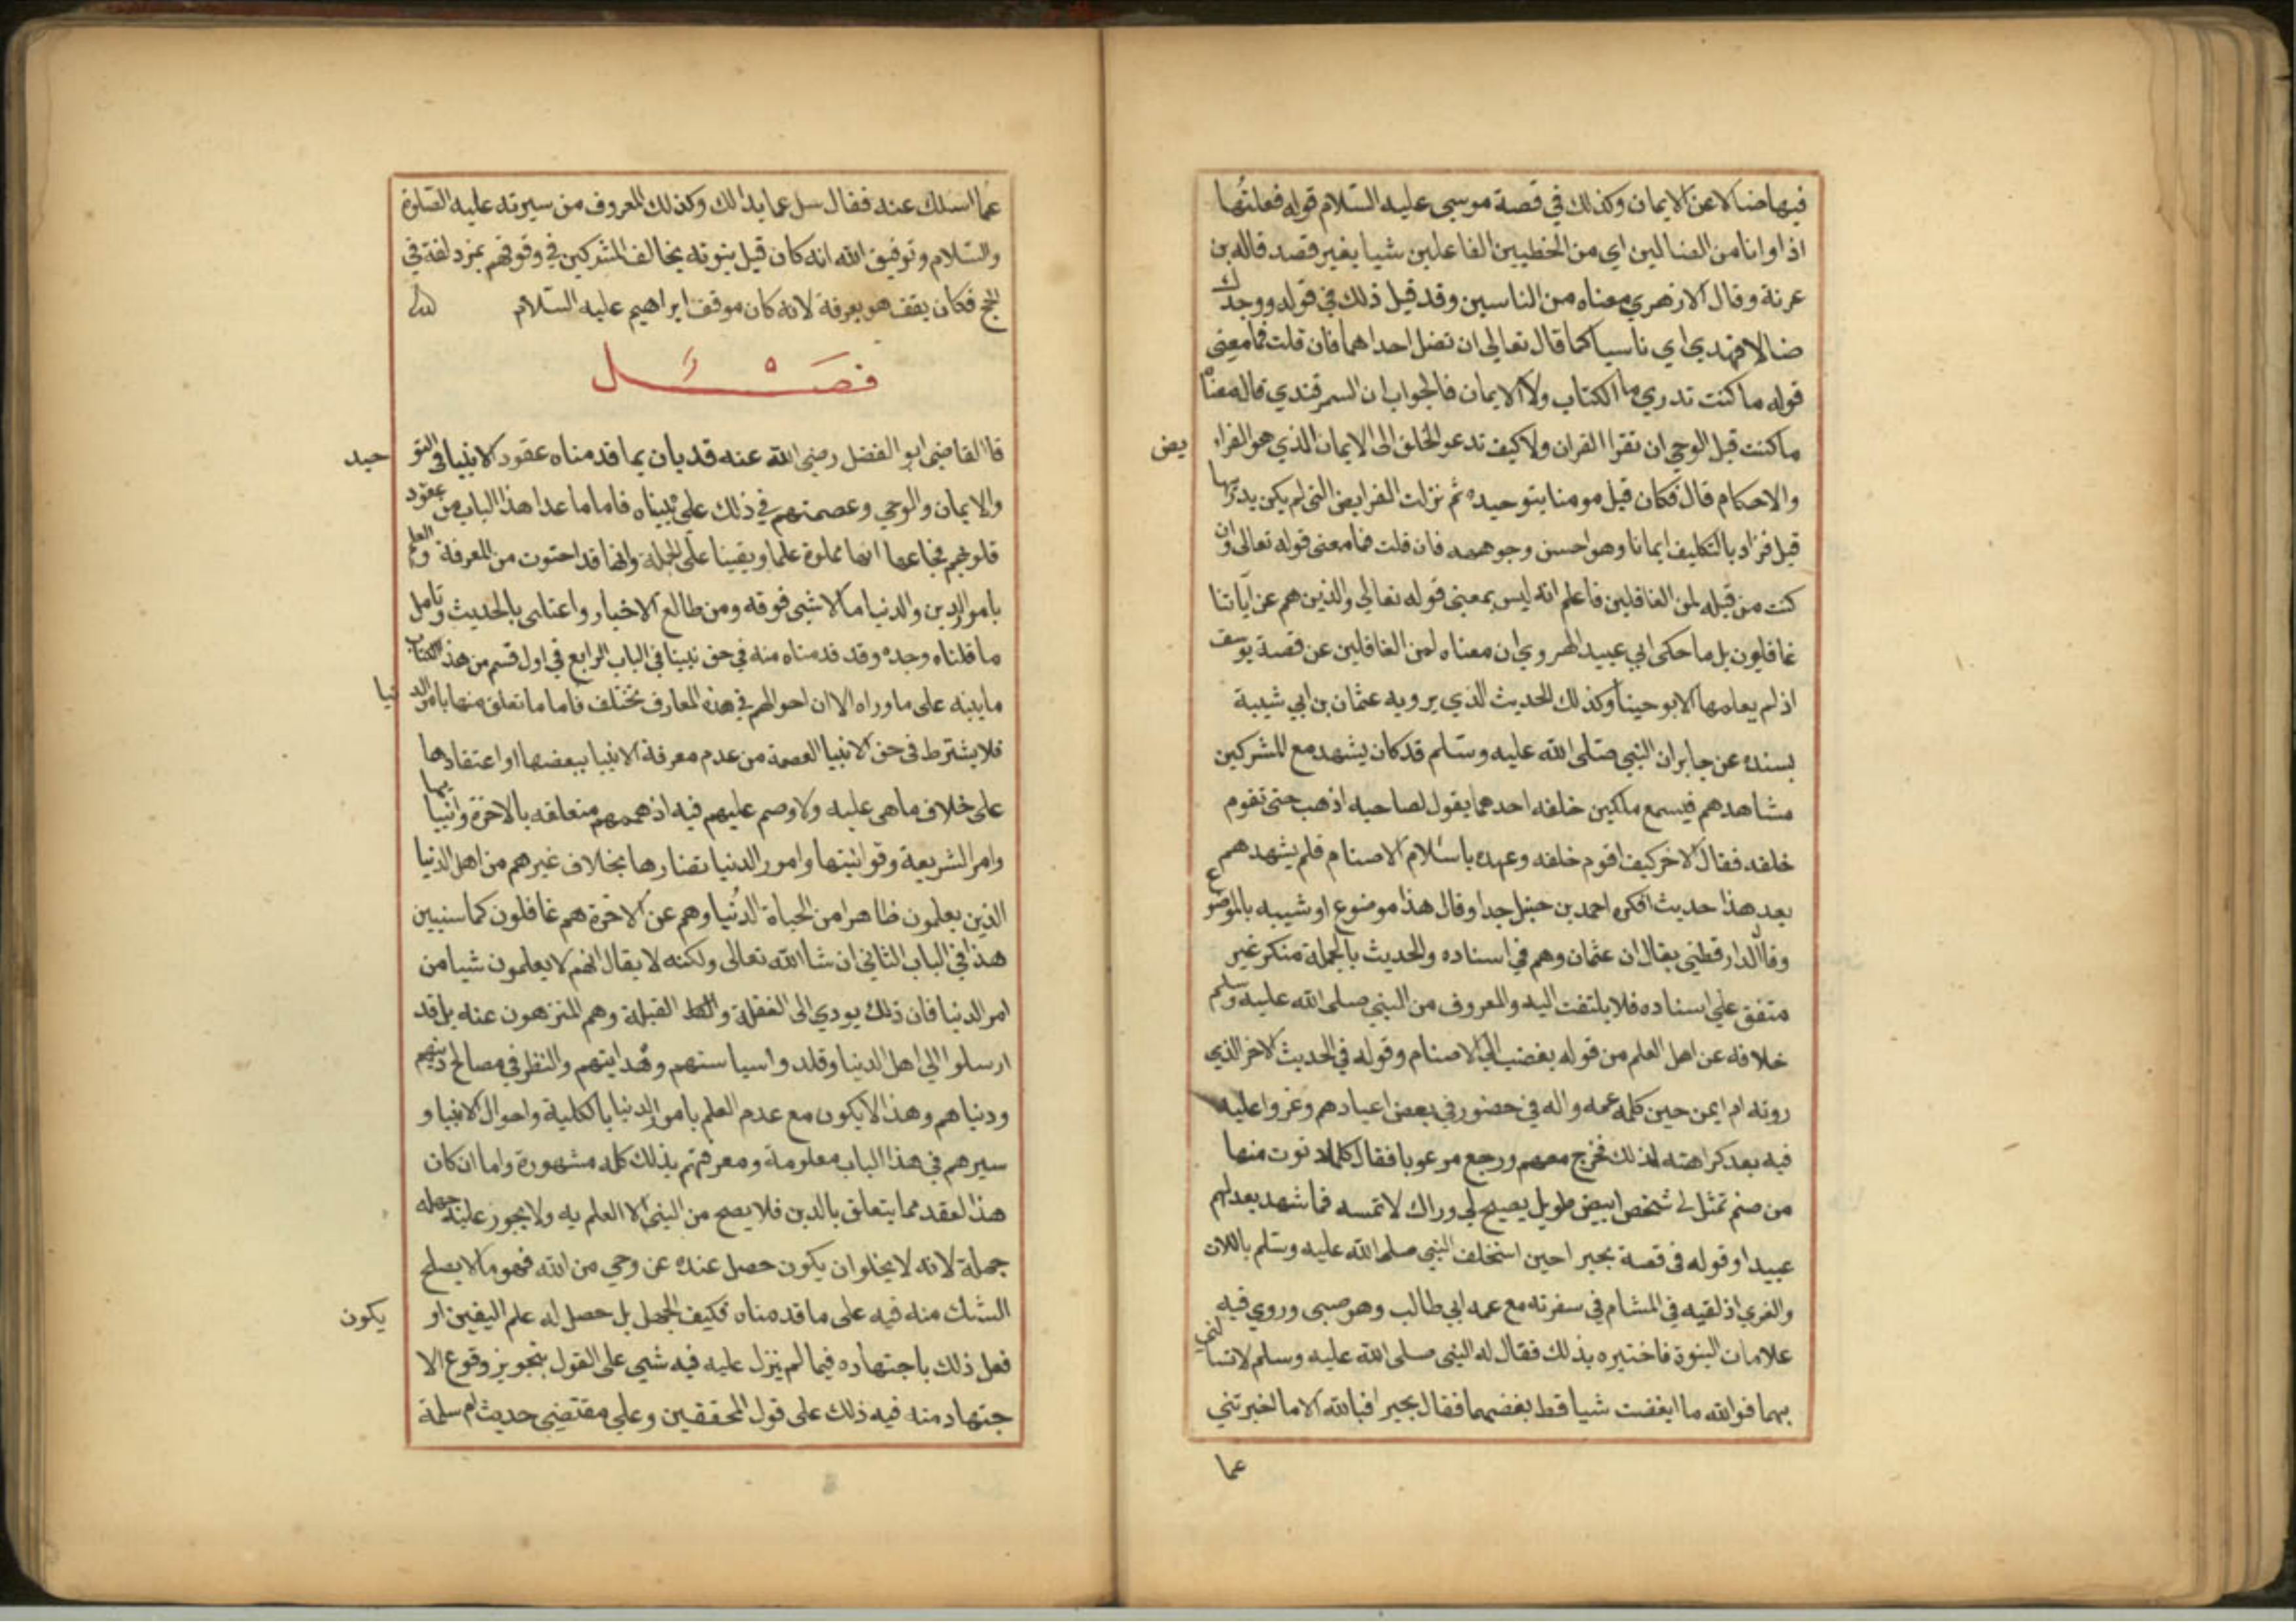 فيها ضالا عن الايمان وكذلك في قصة موسى عليه السلام قوله فعلتها
اذا وانا من الضالين اي من المخطيين الفاعلين شيا بغير قصد قاله بن
عرفة وقال الازهري معناه من الناسين وقد قيل ذلك في قوله ووجدك
ضالا فهدى اي ناسيا كما قال تعالى ان تضل احداهما فان قلت فما معنى
قوله ما كنت تدري ما الكتاب ولا الايمان فالجواب ان السمرقندي قال معناه
ماكنت قبل الوحي ان تقرا القران ولا كيف تدعو الخلق الى الايمان الذي هو الفرا يض
والاحكام قال فكان قبل مومنا بتوحيده ثم نزلت الفرايض التي لم يكن يدريها
قبل فزاد بالتكليف ايمانا وهو احسن وجوهه فان قلت فما معنى قوله تعالى وان
كنت من قبله لمن الغافلين فاعلم انه ليس بمعنى قوله تعالى والذين هم عن آياتنا
غافلون بل ما حكى ابي عبيد الهروي ان معناه لمن الغافلين عن قصة يوسف
اذ لم يعلمها الا بوحينا وكذلك الحديث الذي يرويه عثمان بن ابي شيبة
بسنده عن جابر ان النبي صلى الله عليه وسلم قد كان يشهد مع المشركين
مشاهدهم فيسمع ملكين خلفه احدهما يقول لصاحبه اذهب حتى تقوم
خلفه فقال الاخر كيف اقوم خلفه وعهده باستلام الاصنام فلم يشهدهم
بعد هذا حديث انكره احمد بن حنبل جدا وقال هذا موضوع او شبيه بالموضوع
وقال الدارقطني يقال ان عثمان وهم في اسناده والحديث بالجملة منكر غير
متفق على اسناده فلا يلتفت اليه والمعروف من النبي صلى الله عليه وسلم
خلافه عن اهل العلم من قوله بغضب الي الاصنام وقوله في الحديث الاخر الذي
روته ام ايمن حين كلمه عمه واله في حضور في بعض اعيادهم وعزوا عليه
فيه بعد كراهته لذلك فخرج معهم ورجع مرعوبا فقال كلما دنوت منها
من صنم تمثل لي شخص ابيض طويل يصيح لي وراك لا تمسه فما شهد بعد لهم
عيدا وقوله في قصة بحيرا حين استحلف النبي صلى الله عليه وسلم باللات
والعزي اذ لقيه في الشام في سفرته مع عمه ابي طالب وهو صبى وروي فيه
علامات النبوة فاختبره بذلك فقال له النبى صلى الله عليه وسلم لا تسالني
بهما فوالله ما ابغضت شيا قط بغضهما فقال بحيرا فبالله الا ما اخبرتني
عما
عما اسئلك عنه فقال سل عما بدا لك وكذلك المعروف من سيرته عليه الصلوة
والسلام وتوفيق الله انه كان قبل نبوته يخالف المشركين في وقوفهم بمزدلفة في
الحج فكان يقف هو بعرفة لانه كان موقف ابراهيم عليه السلام
فصل
قال القاضي ابو الفضل رضي الله عنه قد بان بما قدمناه عقود الانبيا في التو حيد
والايمان والوحي وعصمتهم في ذلك على بيناه فاما ما عدا هذا الباب من عقود
قلوبهم فجماعها انها مملوة علما ويقينا على الجملة وانها قد احتوت من المعرفة والعلم
بامور الدين والدنيا ما لا شي فوقه ومن طالع الاخبار واعتنى بالحديث وتامل
ما قلناه وجده وقد قدمناه منه في حق نبينا في الباب الرابع في اول قسم من هذا الكتاب
ما ينبه على ما وراه الا ان احوالهم في هذه المعارف تختلف فاما ما تعلق منها بامر الد نيا
فلا يشترط في حق الانبيا العصمة من عدم معرفة الانبيا ببعضها او اعتقادها
على خلاف ما هي عليه ولا وصم عليهم فيه اذ هممهم متعلقه بالاخرة وانبيا يها
وامر الشريعة وقوانينها وامور الدنيا تضارها بخلاف غيرهم من اهل الدنيا
الذين يعلمون ظاهرا من الحياة الدنيا وهم عن الاخرة هم غافلون كما سنبين
هذا في الباب الثاني ان شا الله تعالى ولكنه لا يقال انهم لا يعلمون شيا من
امر الدنيا فان ذلك يودي الى الغفلة و القبلة وهم المنزهون عنه بل قد
ارسلوا الي اهل الدنيا وقلدوا سياستهم وهدايتهم والنظر في مصالح دينهم
ودنياهم وهذا لا يكون مع عدم العلم بامور الدنيا بالكلية واحوال الانبيا و
سيرهم في هذا الباب معلومة ومعرفتهم بذلك كله مشهورة واما ان كان
هذا العقد مما يتعلق بالدين فلا يصح من النبي الا العلم به ولا يجوز عليه جهله
جملة لانه لا يخلو ان يكون حصل عنده عن وحي من الله فهو ما لا يصلح
الشك منه فيه على ما قدمناه فكيف الجهل بل حصل له علم اليقين او يكون
فعل ذلك باجتهاده فيما لم ينزل عليه فيه شي على القول بتجويز وقوع الا
جتهاد منه فيه ذلك على قول المحققين وعلي مقتضى حديث ام سلمة